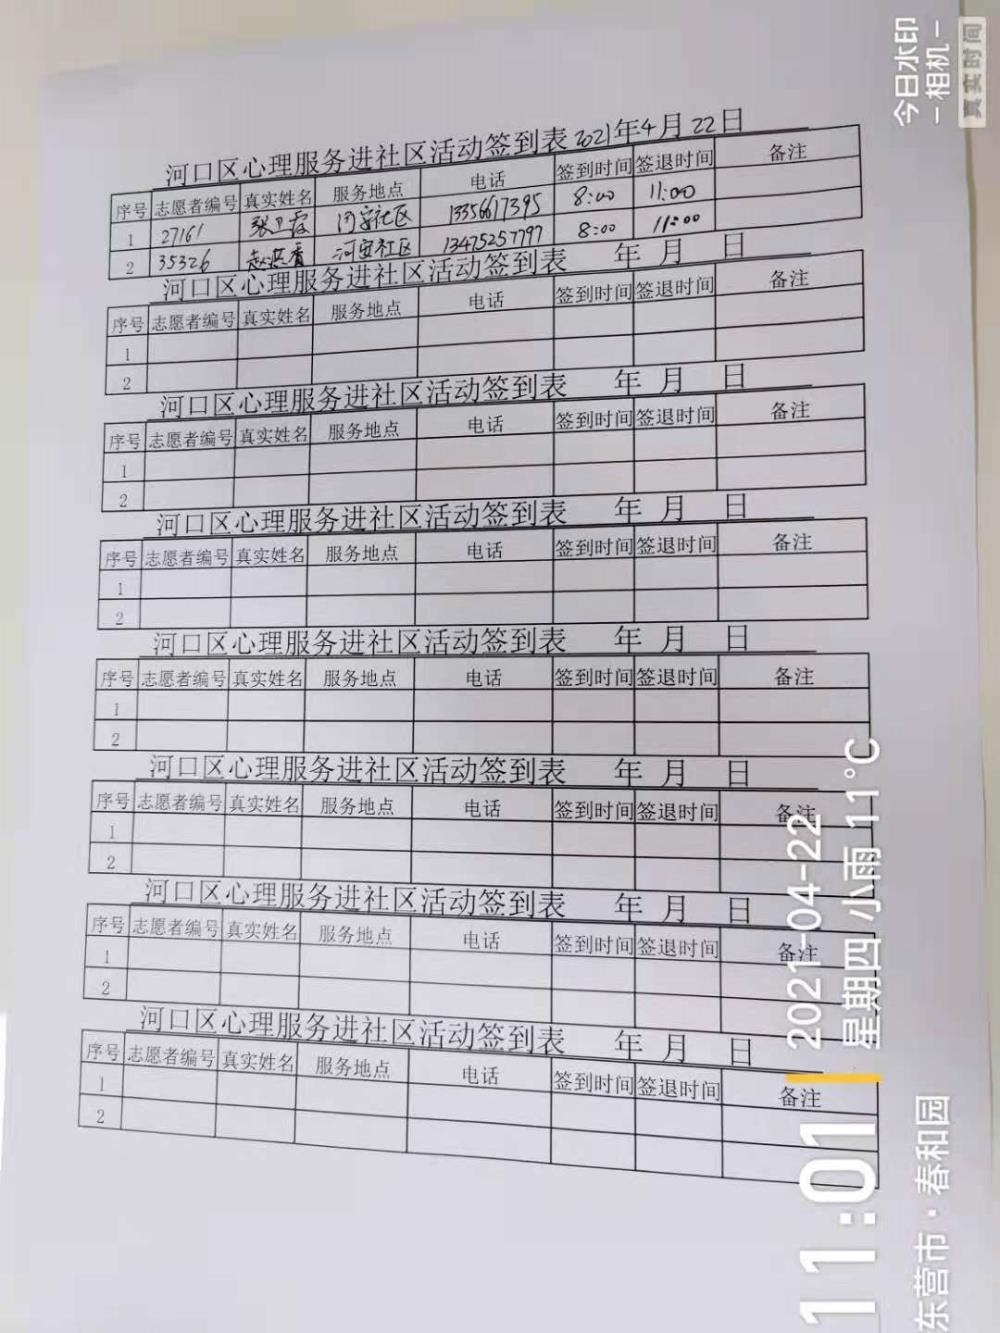 河口区心理服务进社区活动签到表 2021年4月22日
序号 志愿者编号 真实姓名 服务地点 电话 签到时间 签退时间 备注
1 27161 张卫霞 河安社区 13356617395 8:00 11:00
2 35326 赵洪香 河安社区 13475257797 8:00 11:00
河口区心理服务进社区活动签到表 年 月 日
序号 志愿者编号 真实姓名 服务地点 电话 签到时间 签退时间 备注
1
2
河口区心理服务进社区活动签到表 年 月 日
序号 志愿者编号 真实姓名 服务地点 电话 签到时间 签退时间 备注
1
2
河口区心理服务进社区活动签到表 年 月 日
序号 志愿者编号 真实姓名 服务地点 电话 签到时间 签退时间 备注
1
2
河口区心理服务进社区活动签到表 年 月 日
序号 志愿者编号 真实姓名 服务地点 电话 签到时间 签退时间 备注
1
2
河口区心理服务进社区活动签到表 年 月 日
序号 志愿者编号 真实姓名 服务地点 电话 签到时间 签退时间 备注
1
2
河口区心理服务进社区活动签到表 年 月 日
序号 志愿者编号 真实姓名 服务地点 电话 签到时间 签退时间 备注
1
2
河口区心理服务进社区活动签到表 年 月 日
序号 志愿者编号 真实姓名 服务地点 电话 签到时间 签退时间 备注
1
2
11:01
2021-04-22
星期四 小雨 11°C
东营市·春和园
今日水印
-相机-
真实时间